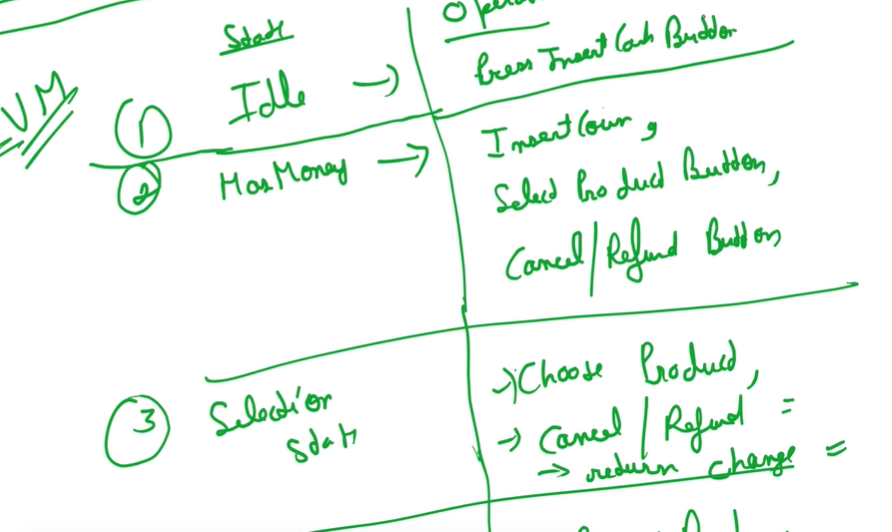 State
Press Insert Cash Button
VM
1 Idle →
2 HasMoney →
Insert Coin,
Select Product Button,
Cancel/Refund Button
3 Selection
State
→ Choose Product,
→ Cancel/Refund =
→ return change =